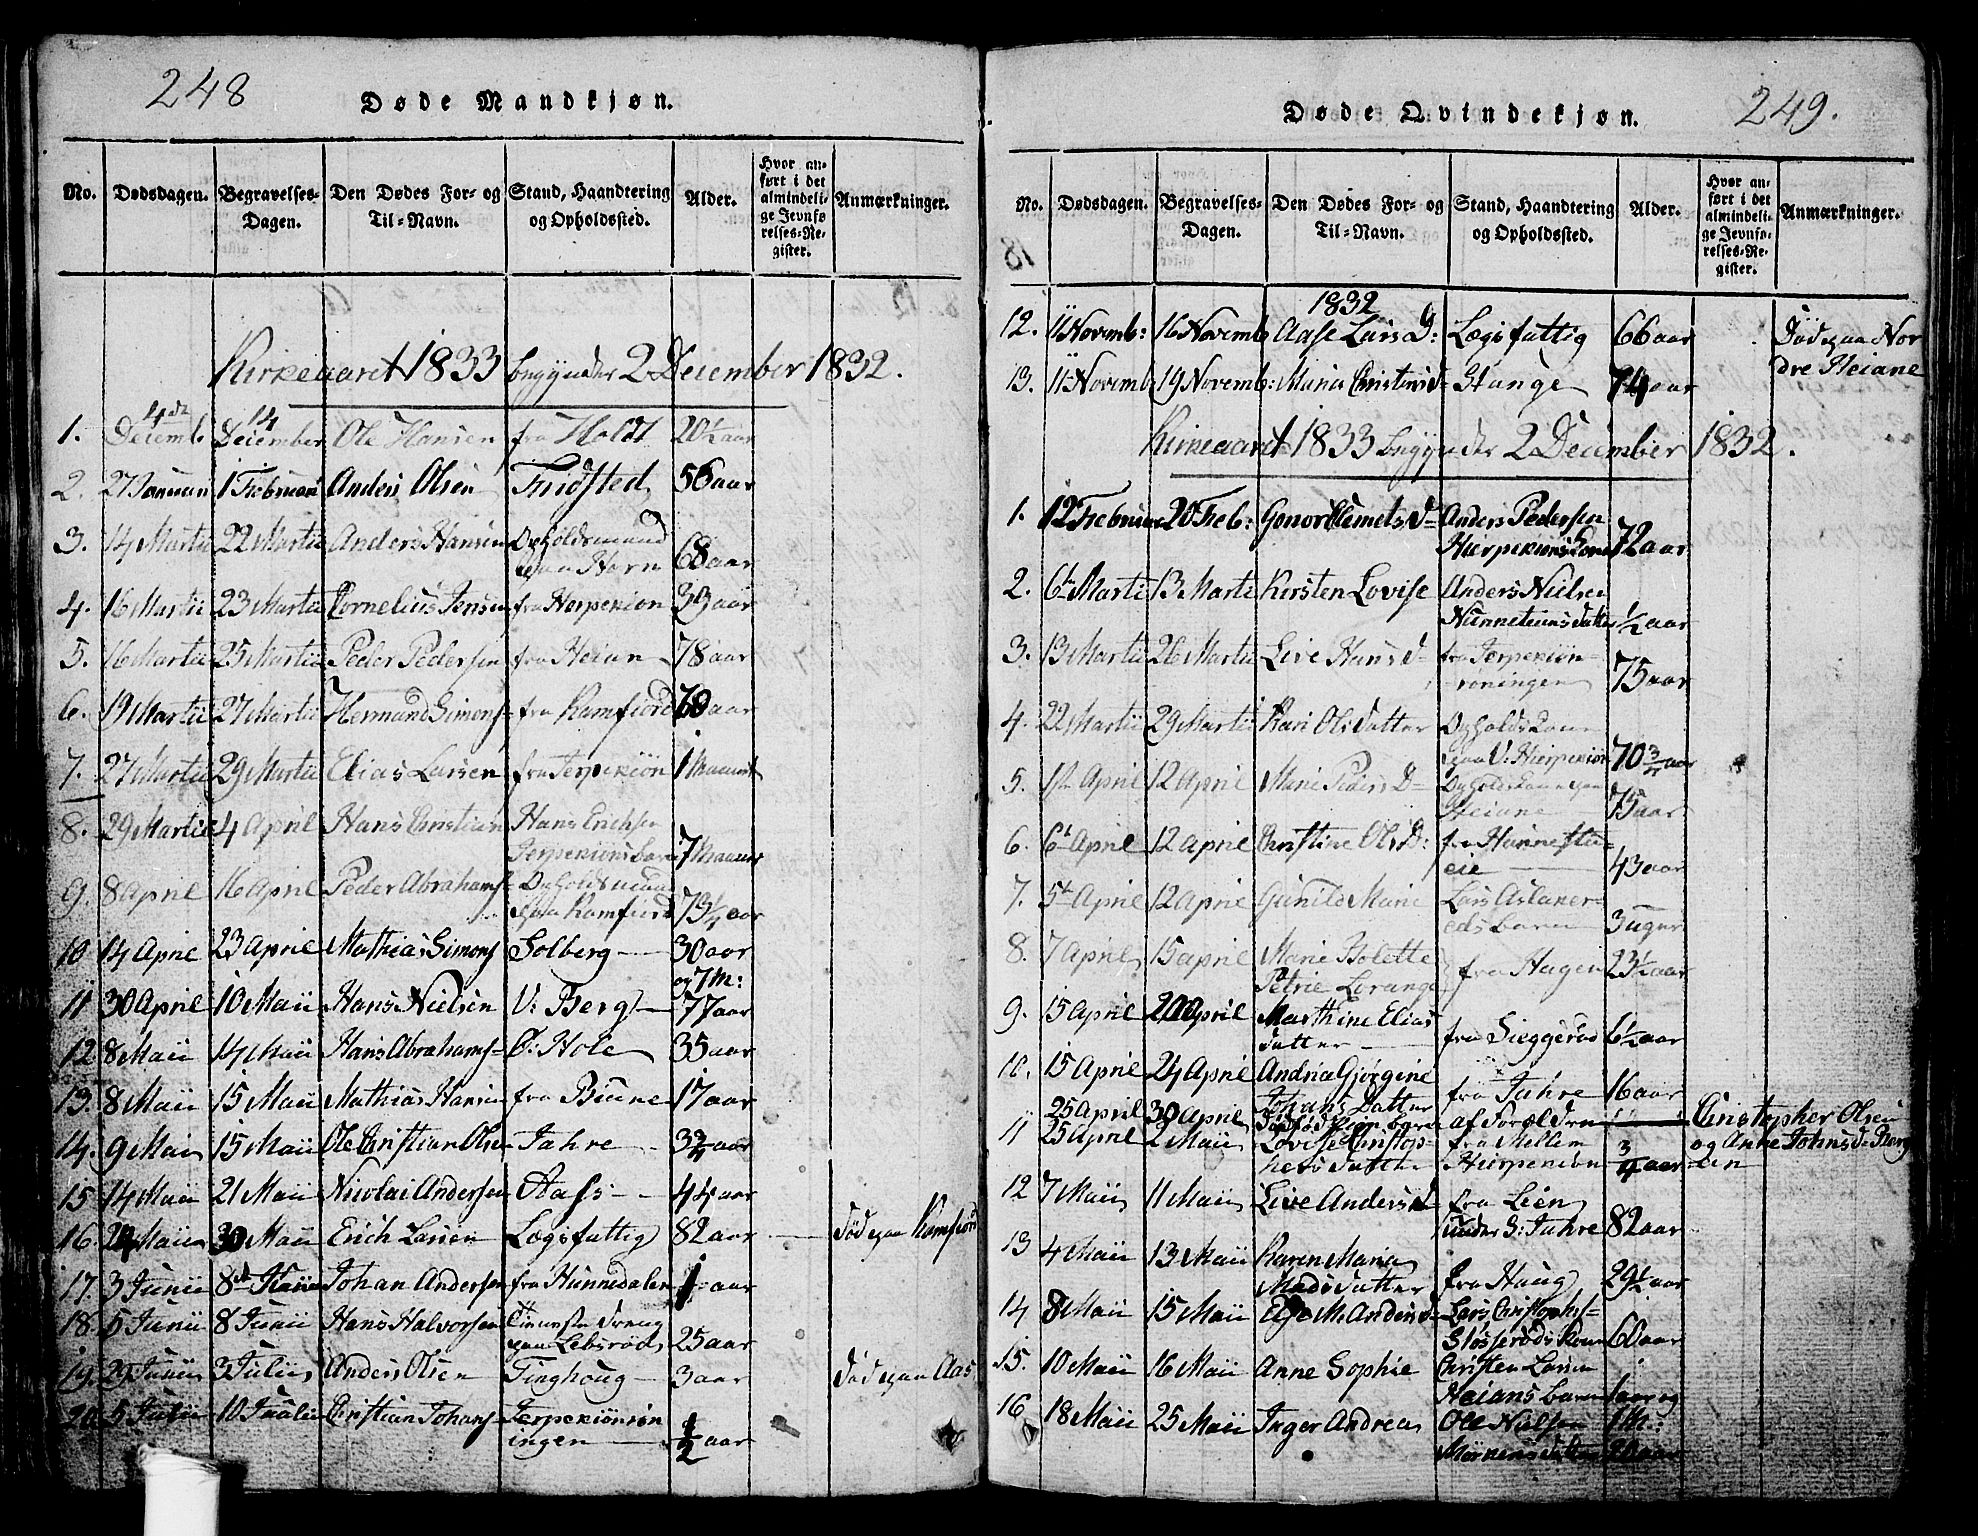 248
Døde Mandkjøn.
No. Dødsdagen. Begravelses-Dagen. Den Dødes For- og Til-Navn. Stand, Haandtering og Opholdssted. Alder. Hvor anført i det almindelige Jevnførelses-Register. Anmærkninger.
Kirkeaaret 1833 begynder 2 December 1832.
1. 4de Decemb 14 December Ole Hansen fra Holdt 20½ aar
2. 27 Januari 1 Februari Anders Olsen Fridsted 56 aar
3. 14 Martii 22 Martii Anders Hansen Opholdsmand paa Horn 68 aar
4. 16 Martii 23 Martii Cornelius Jensen fra Herpekiøn 39 aar
5. 16 Martii 25 Martii Peder Pedersen fra Heian 78 aar
6. 19 Martii 27 Martii Hermand Simons= fra Ramfiord aar
7. 27 Martii 29 Martii Elias Larsen fra Jerpekiøn 1 Maaned
8. 29 Martii 4 April Hans Cristian Hans Erichsen Jerpekiøns barn 7 Maaner
9. 8 April 16 April Peder Abrahams= Opholdsmand paa Ramfiord 73¼ aar
10 14 April 23 April Mathias Simons Solberg 30 aar og 7 M:
11 30 April 10 Maii Hans Nielsen V: Berg 77 aar
12 8 Maii 14 Maii Hans Abrahams= Ø: Hole 35 aar
13. 8 Maii 15 Maii Mathias Hansen fra Biune 17 aar
14. 9 Maii 15 Maii Ole Christian Olsen Jahre 3¾ aar
15 14 Maii 21 Maii Nicolai Andersen Aass 44 aar
16. Maii 30 Maii Erich Larsen Lægsfattig 82 aar død paa Ramfiord
17. 3 Junii 8de Junii Johan Andersen fra Hunnedalen 1 aar
18. 5 Junii 8 Junii Hans Halvorsen Tieneste Dreng paa Lebsrød 25 aar
19. 29 Junii 3 Julii Anders Olsen Tinghoug 3 aar død paa Aas
20. 5 Julii 10 Julii Cristian Johans Jerpekiønsøningen ½ aar
249.
Døde Qvindekjøn.
No. Dødsdagen. Begravelses-Dagen. Den Dødes For- og Til-Navn. Stand, Haandtering og Opholdssted. Alder. Hvor anført i det almindelige Jevnførelses-Register. Anmærkninger.
1832
12. 11 Novemb: 16 Novemb Aase Lars D: Lægsfattig 66 aar Død paa Nordre Heiane
13. 11 Novemb 19 Novemb: Maria Cristens D= Hauge 74 aar
Kirkeaaret 1833 begynder 2 December 1832.
1. 12 Februar 20 Feb: Gonor Clemets D= Anders Pedersen Hierpekiøns Kone 72 aar
2. 6te Martii 13 Martii Kirsten Lovise Anders Nielsen datter ½ aar
3. 13 Martii 26 Martii Live Hans D= fra Jerpekiønroningen 75 aar
4. 22 Martii 29 Martii Kari Olsdatter Opholdskone paa V: Hierpekiøn 70¾ aar
5. April 12 April Marie Peders D= Opholdskone paa Heiane 75 aar
6. 6t April 12 April Christine Ols D: fra Hunnestueeie 43 aar
7. 5te April 12 April Gunild Marie Lars Aslakereds barn 3 uger
8. 7 April 15 April Marie Bolette Petrie Lorange fra Hagen 23½ aar
9. 15 April 20 April Marthine Eliasdatter fra Sieggerød 6½ aar
10. 15 April 24 April Andria Gjørgine Johans Datter fra Jahre 16 aar
25 April 30 April Dødfød barn af Foreldrene Cristopher Olsen og Anne Johns D: Bergein
11 25 April 2 Maii Lovise Christophers datter fra Mellem Hierpekiøn ¾ aar
12 7 Maii 11 Maii Live Anders D fra Lien under S: Jahre 82 aar
13 4 Maii 13 Maii Karen Maria Mads datter fra Haug 29½ aar
14 8 Maii 15 Maii Else M. Anders D= Lars Christophs= Støsserøds Kone 60 aar
15. 10 Maii 16 Maii Anne Sophie Christen Larsen Heians barn 1 aar og 1 M:
16 18 Maii 25 Maii Inger Andrea Ole Nielsen datter aar